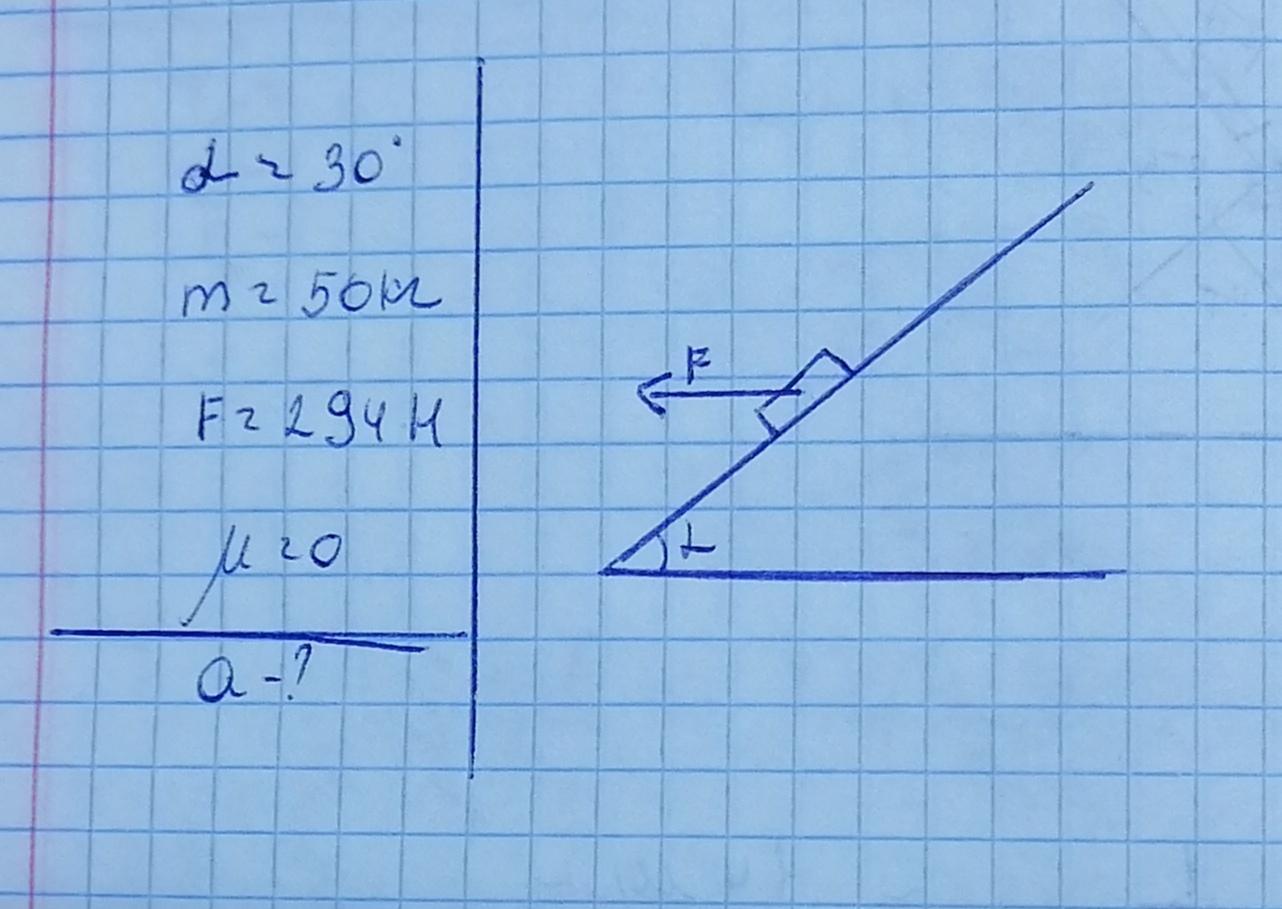 α = 30°
m = 50 кг
F = 294 Н
μ = 0
a - ?
F
α